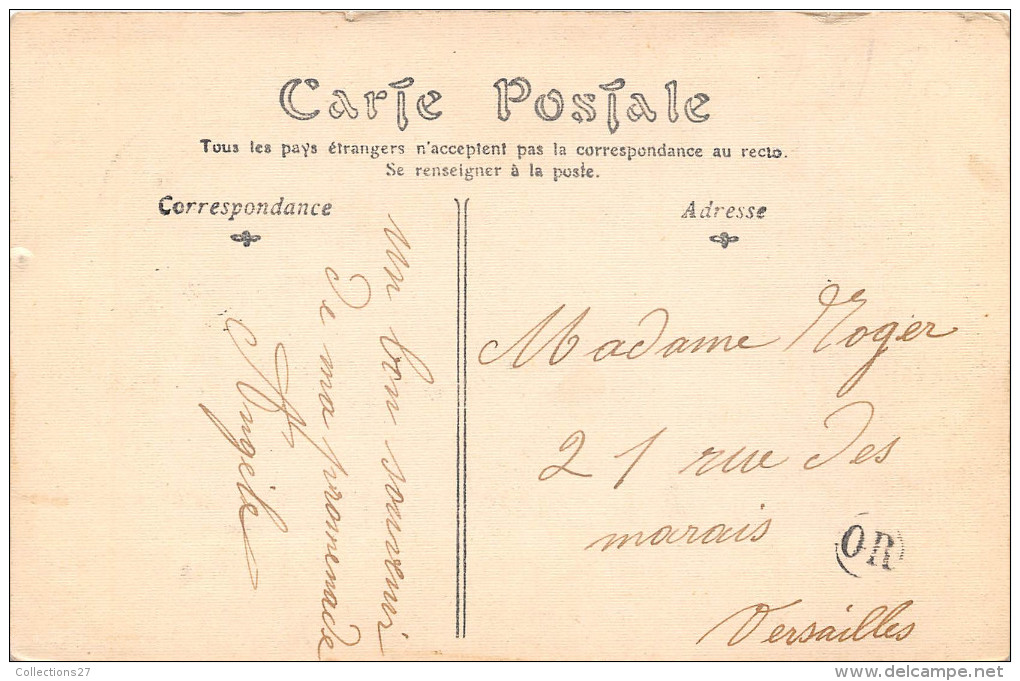 Carte Postale
Tous les pays étrangers n'acceptent pas la correspondance au recto.
Se renseigner à la poste.
Correspondance
Un bon souvenir
de ma promenade
Angèle
Adresse
Madame Roger
21 rue des
marais
Versailles
OR
Collections27
www.delcampe.net